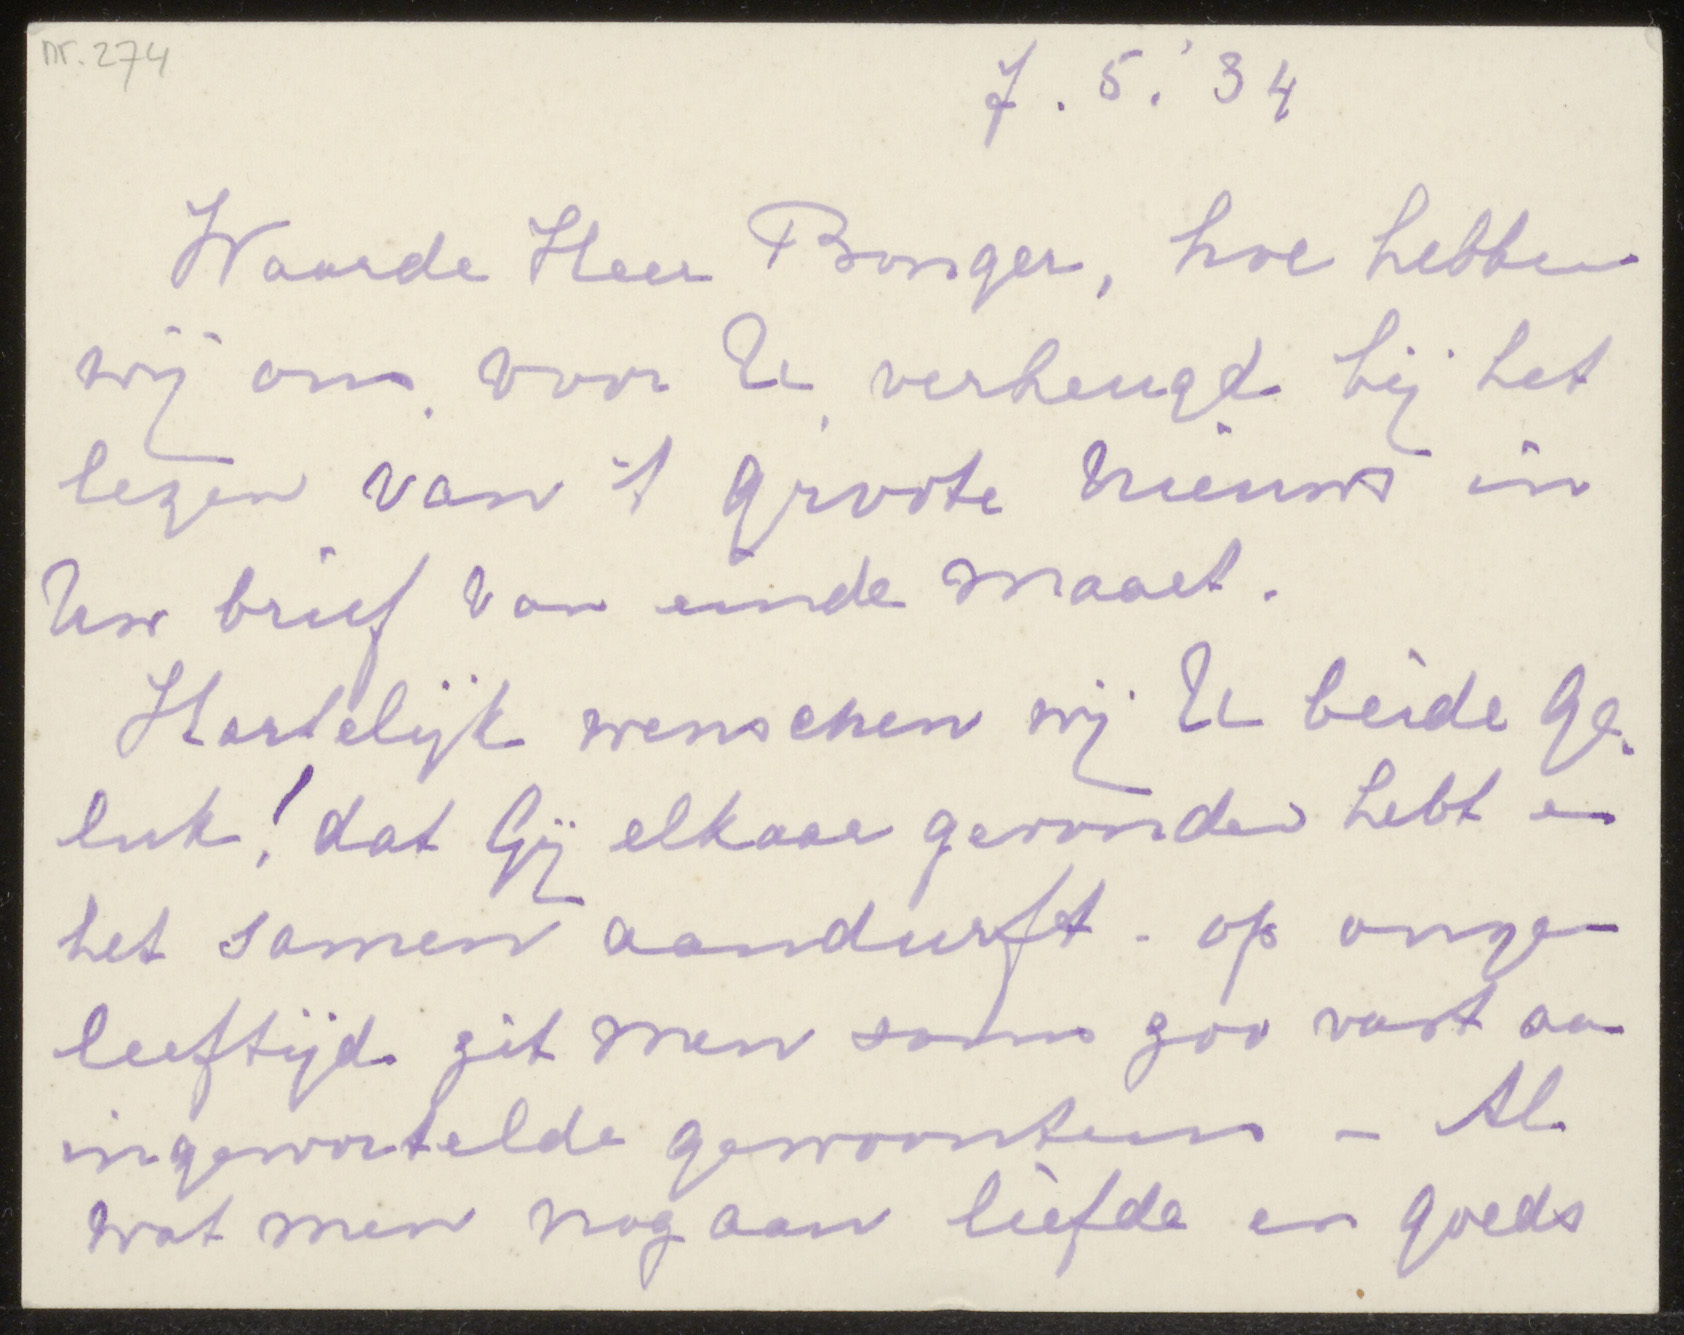 nr. 274
7. 5. '34
Waarde Heer Bonger, hoe hebben
wij ons, voor U, verheugd bij het
lezen van 't groote nieuws in
Uw brief van einde Maart.
Hartelijk wenschen wij U beide ge-
luk! dat Gij elkaar gevonden hebt en
het samen aandurft - op onze
leeftijd zit men soms zoo vast aan
ingewortelde gewoonten - Al
wat men nog aan liefde en goeds